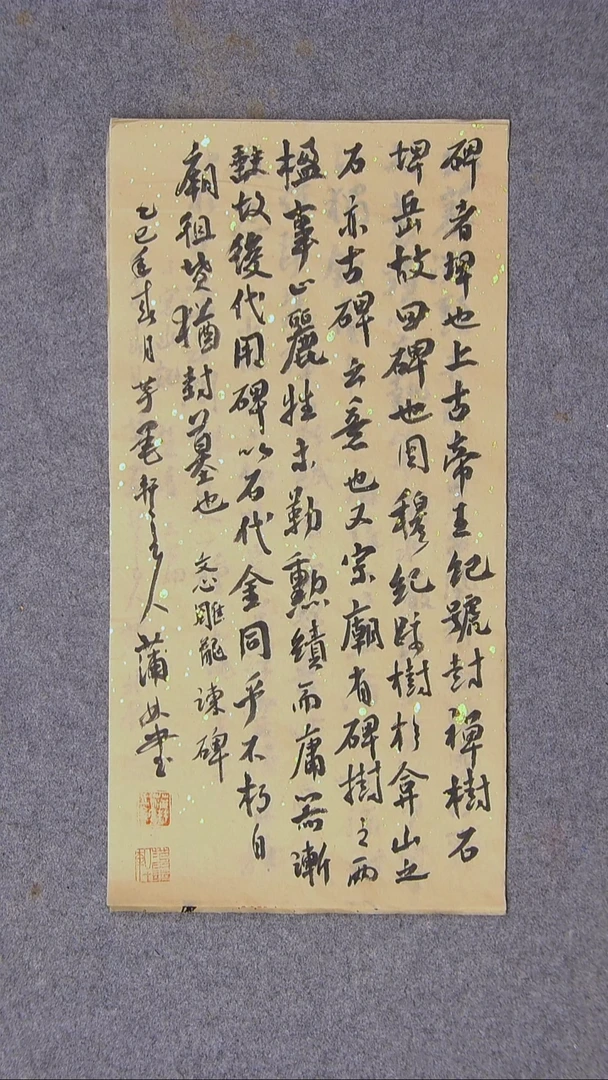 碑者埤也上古帝王紀號封禪樹石
埤岳故曰碑也周穆紀跡樹於弇山之
石亦古碑之意也又宗廟有碑樹之兩
楹事止麗牲未勒勳績而庸器漸
缺故後代用碑以石代金同乎不朽自
廟徂墳猶封墓也 文心雕龍 誄碑
乙巳年春月軒主人蒲書